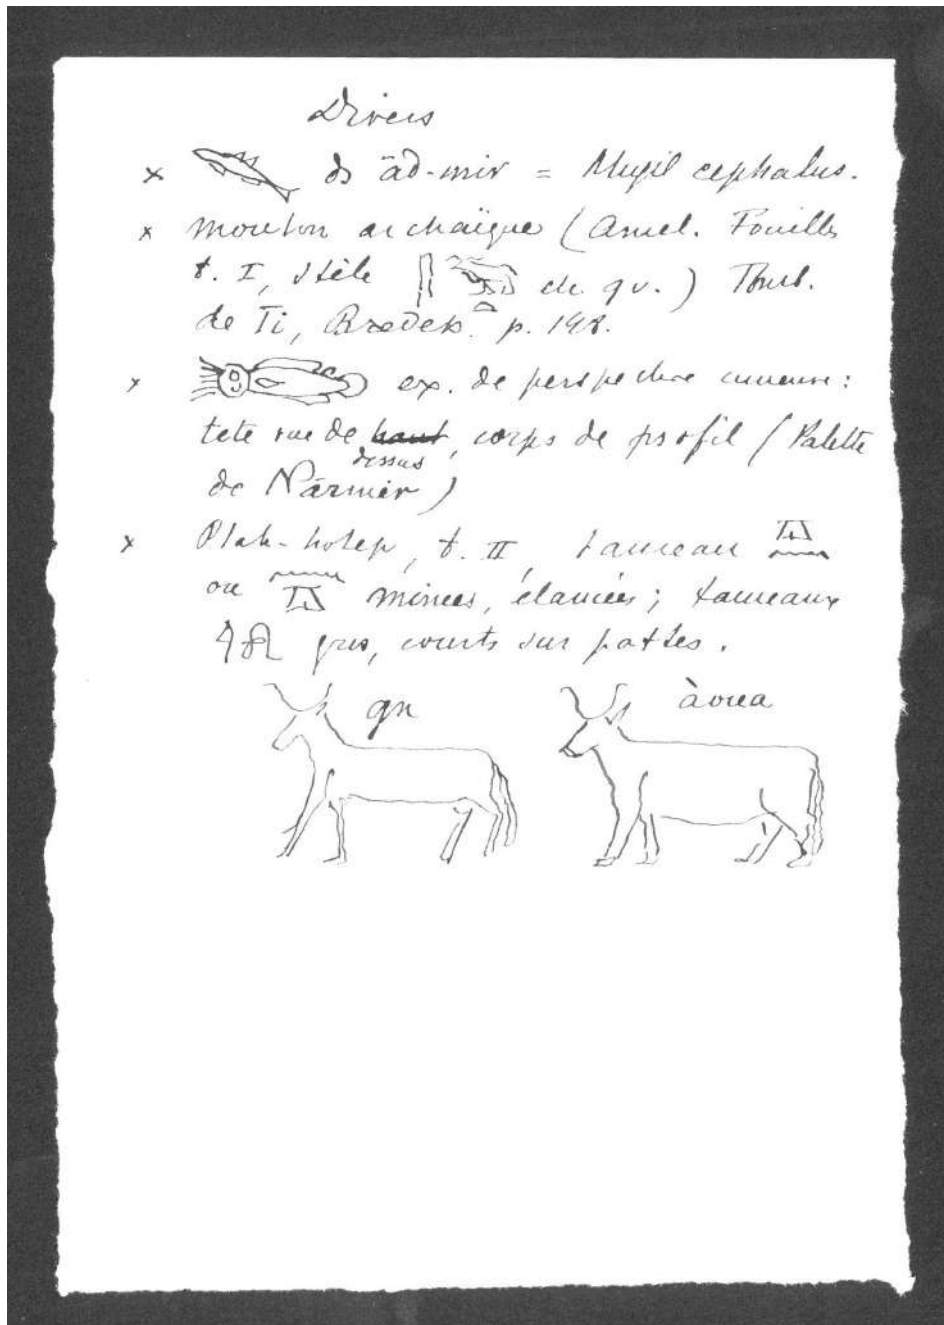 Divers
× ds äd-mir = Mugil cephalus.
× mouton archaïque (Amel. Fouilles
t. I, stèle de qv.) Tomb.
de Ti, Bædek. p. 142.
× ex. de perspective curieuse :
tete vue de haut dessus, corps de profil (Palette
de Närmer)
× Ptah-hotep, t. II, taureau
ou minces, élancées ; taureaux
gros, courts sur pattes.
gn àoua